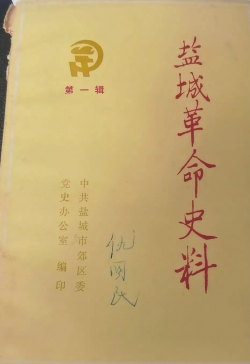 盐城革命史料
第一辑
中共盐城市郊区委
党史办公室 编印
仇国民